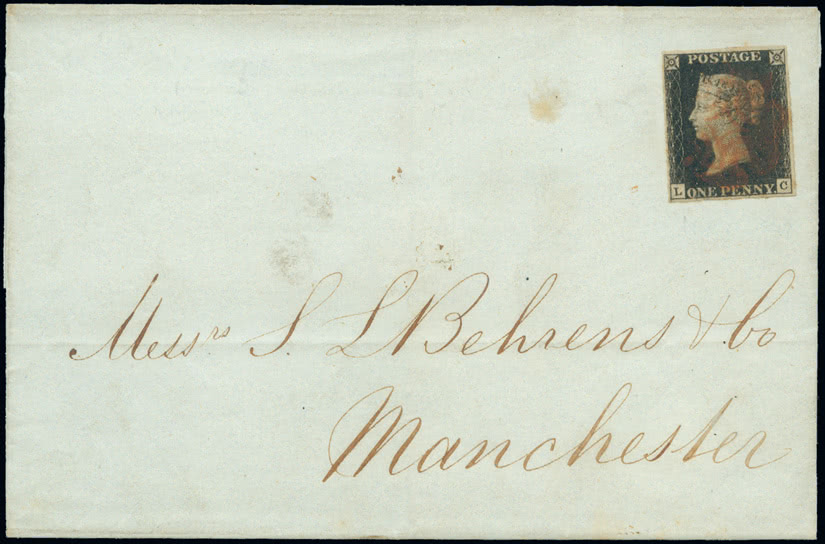 POSTAGE
L ONE PENNY C
Messrs S. L Behrens & Co
Manchester